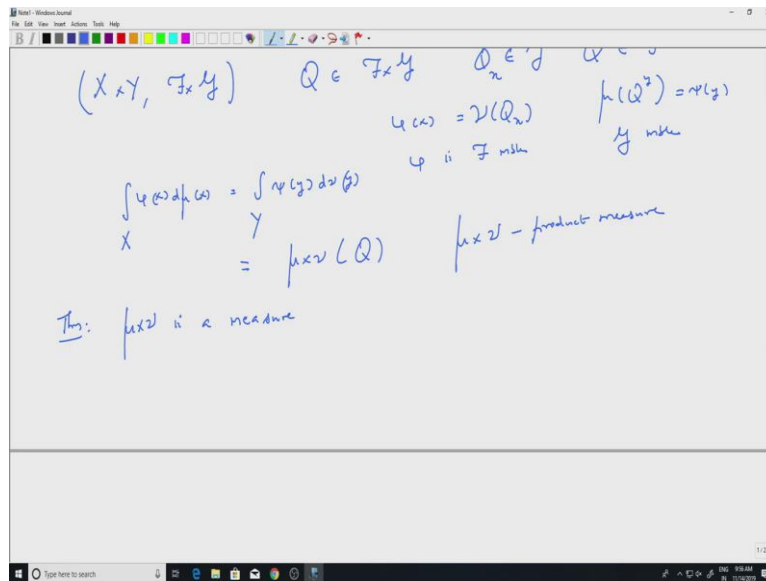 Note1 - Windows Journal
File Edit View Insert Actions Tools Help
(X × Y, ℱ × 𝒢) Q ∈ ℱ × 𝒢 Q_x ∈ 𝒢
φ(x) = ν(Q_x) μ(Q^y) = ψ(y)
φ is ℱ mble 𝒢 mble
∫_X φ(x) dμ(x) = ∫_Y ψ(y) dν(y)
= μ×ν (Q) μ×ν - product measure
Thm: μ×ν is a measure
1/2
Type here to search
ENG 9:56 AM
IN 11/14/2019